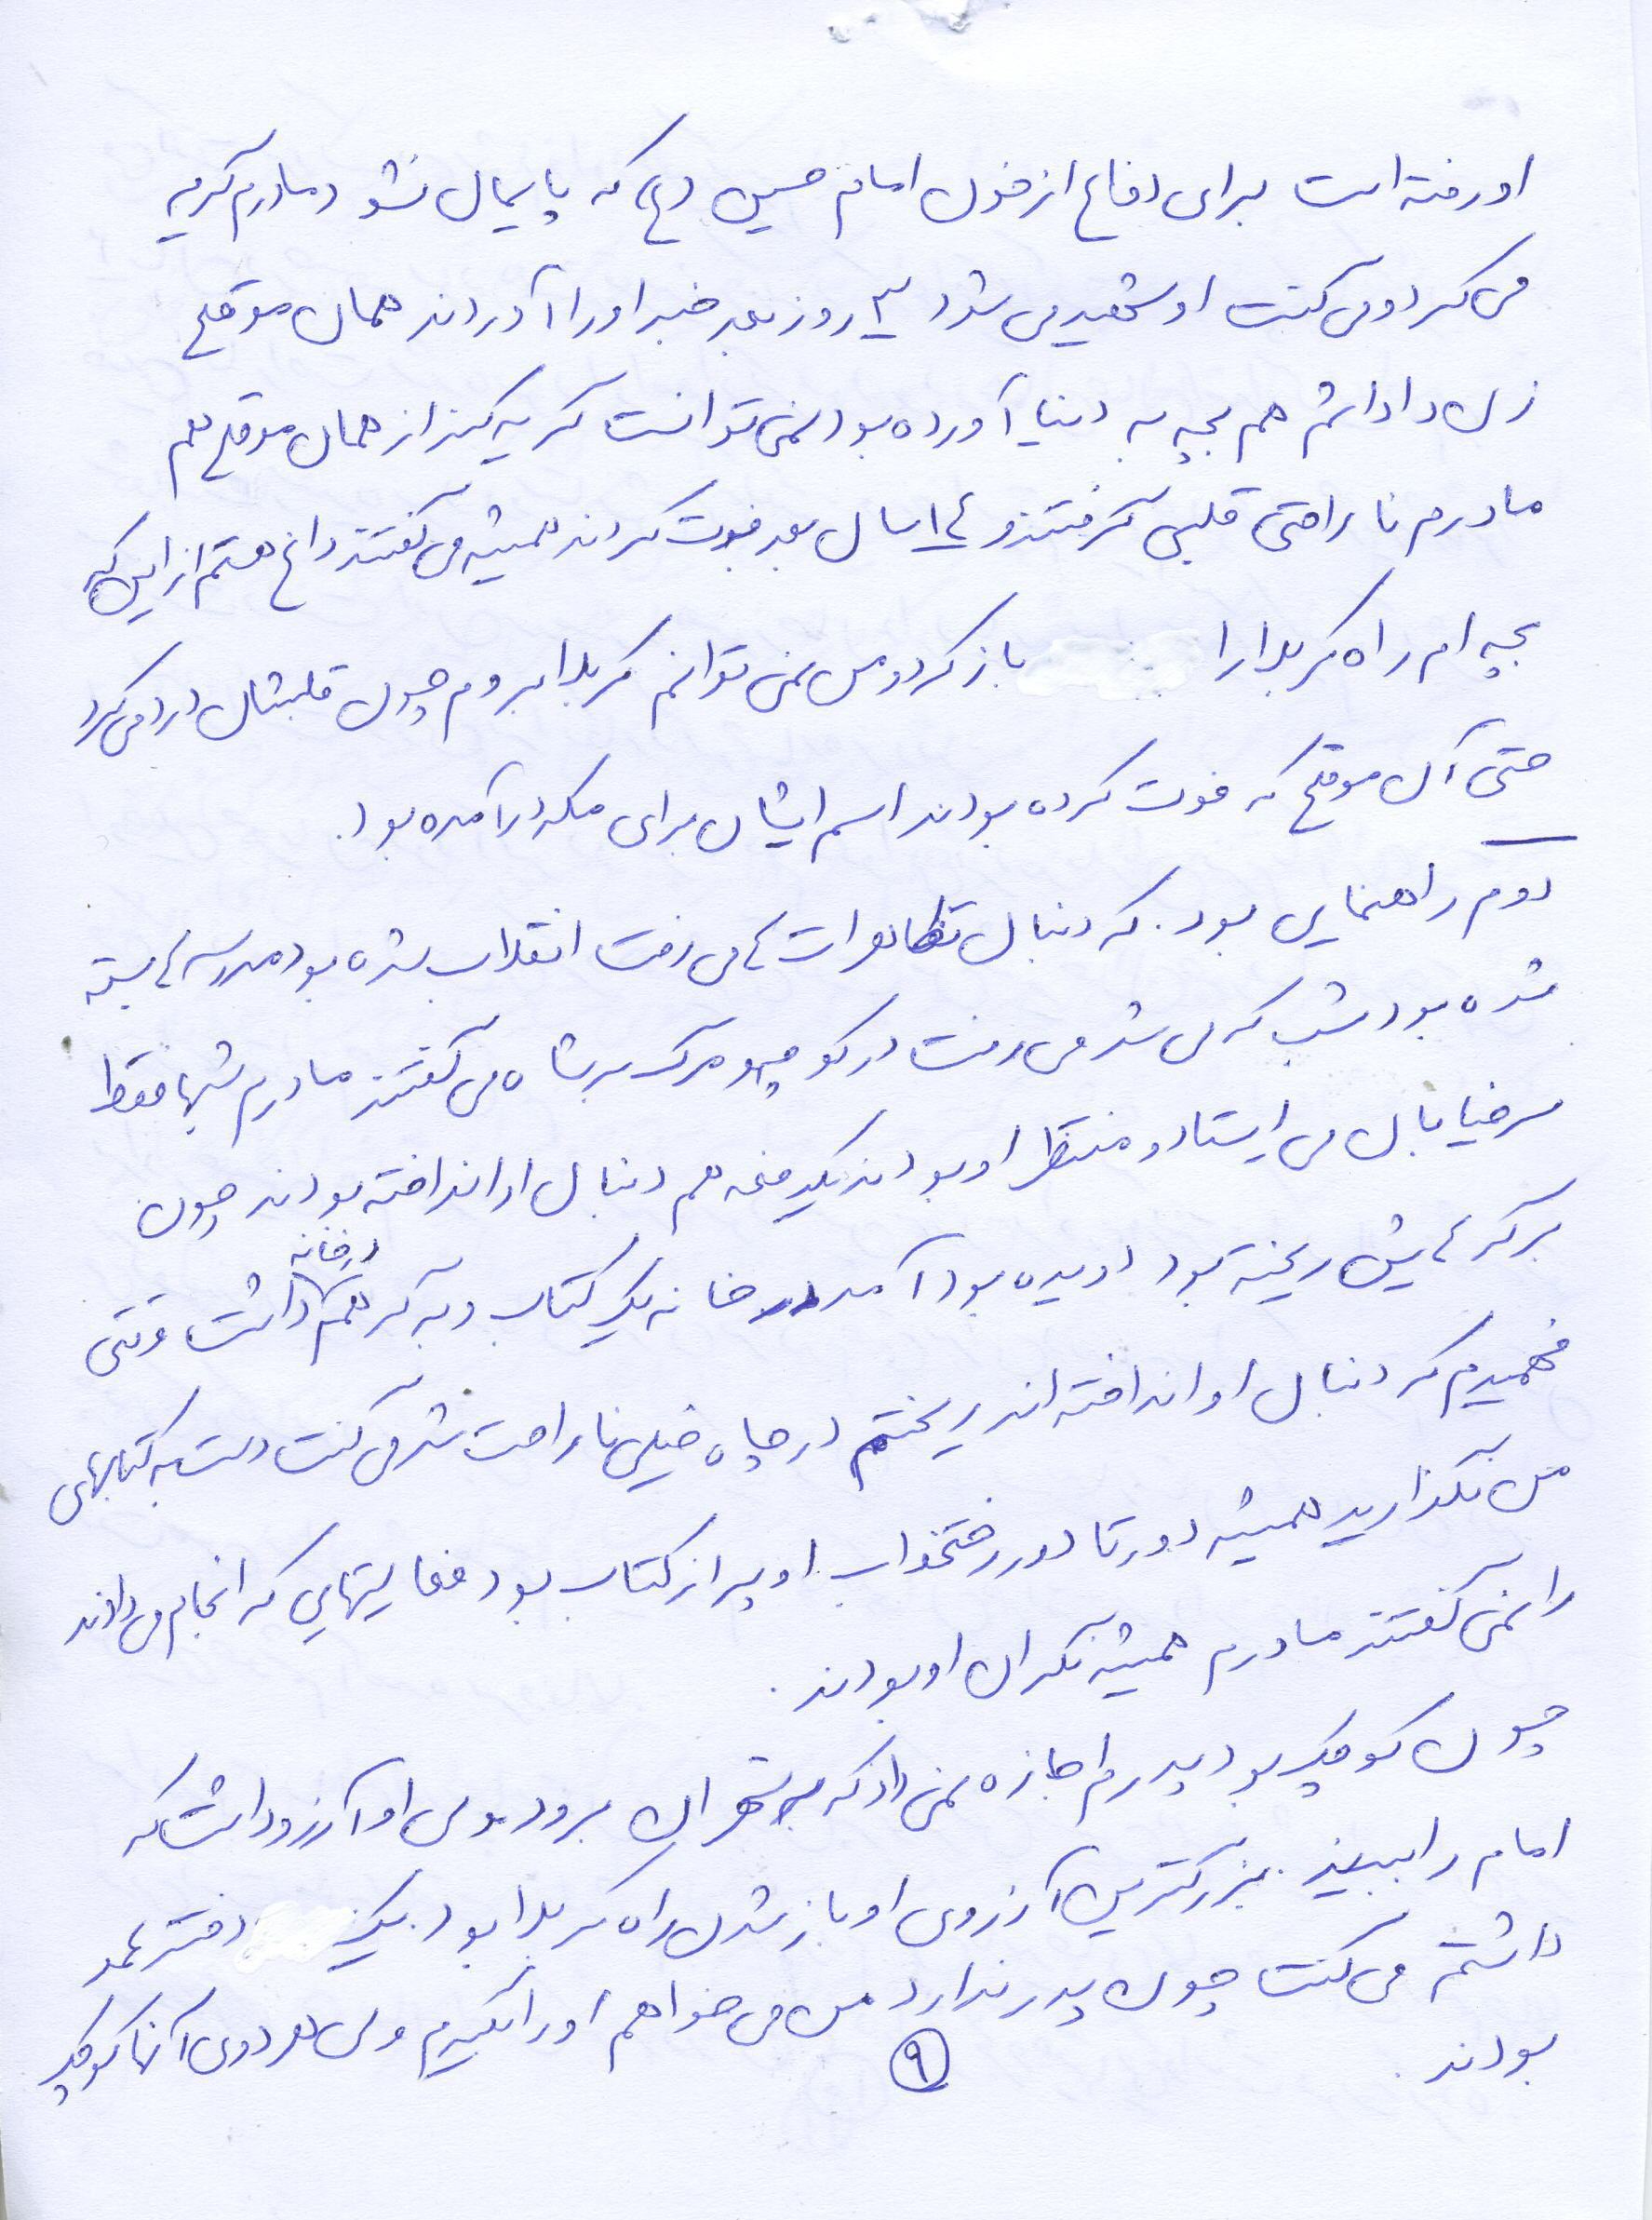 او رفته است برای دفاع از خون امام حسین (ع) که پایمال نشو د مادرم گریه
می کرد و می گفت او شهید می شود ۳ روز بعد خبر او را آوردند همان موقع
زن داداشم هم بچه به دنیا آورده بود نمی توانست گریه کند از همان موقع هم
مادرم ناراحتی قلبی گرفتند و ۱۴ سال بعد فوت کردند همیشه می گفتند داغ هستم از این که
بچه ام راه کربلا را باز کرد و من نمی توانم کربلا بروم چون قلبشان درد می کرد
حتی آن موقع که فوت کرده بودند اسم ایشان برای مکه درآمده بود.
دوم راهنمایی بود. که دنبال تظاهرات ها می رفت انقلاب شده بود مدرسه ها بسته
شده بود شب که می شد می رفت در کوچه و مرگ بر شاه می گفتند مادرم شبها فقط
سر خیابان می ایستاد و منتظر او بودند یکدفعه هم دنبال او انداخته بودند چون
برگه هایش ریخته بود دویده بود آمد در خانه یک کتاب و برگه هم در خانه داشت وقتی
فهمیدم که دنبال او انداخته اند ریختم در چاه خیلی ناراحت شد می گفت دست به کتابهای
من نگذارید همیشه دورتا دور رختخواب او پر از کتاب بود فعالیتهایی که انجام می دادند
را نمی گفتند مادرم همیشه نگران او بودند.
چون کوچک بود پدرم اجازه نمی داد که به تهران برود ولی او آرزو داشت که
امام را ببیند. بزرگترین آرزوی او باز شدن راه کربلا بود. یک دختر عمو
داشتم می گفت چون پدر ندارد من می خواهم او را بگیرم ولی هر دوی آنها کوچک
بودند.
۹